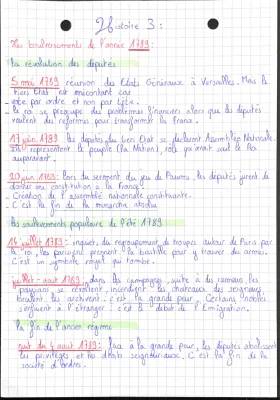 Histoire 3 :
Les bouleversements de l'année 1789 :
la révolution des députés
5 mai 1789 réunion des Etats Généraux à Versailles. Mais le
tiers Etat est mécontent car
vote par ordre et non par tête.
le roi se préoccupe des problèmes financiers alors que les députés
veulent des réformes pour transformer la France.
17 juin 1789 les députés du tiers Etat se déclarent Assemblée Nationale.
représentent le peuple (la Nation), rôle qu'avait seul le Roi
auparavant.
20 juin 1789 : lors du serment du jeu de Paume, les députés jurent de
donner une constitution à la France.
- Création de l'assemblée nationale constituante.
- C'est la fin de la monarchie absolue.
les soulèvements populaires de l'été 1789
14 juillet 1789 : inquiets du regroupement de troupes autour de Paris par
le roi, les parisiens prennent la bastille pour y trouver des armes.
C'est un symbole royal qui tombe.
juillet - août 1789, dans les campagnes, suite à des rumeurs, les
paysans se révoltent, incendient les châteaux des seigneurs,
brûlent les archives. c'est la grande peur. Certains nobles
à l'étranger : c'est le début de l'Emigration.
la fin de l'ancien régime
nuit du 4 août 1789 : face à la grande peur, les députés abolissent
les privilèges et les droits seigneuriaux. C'est la fin de la
société d'ordres.